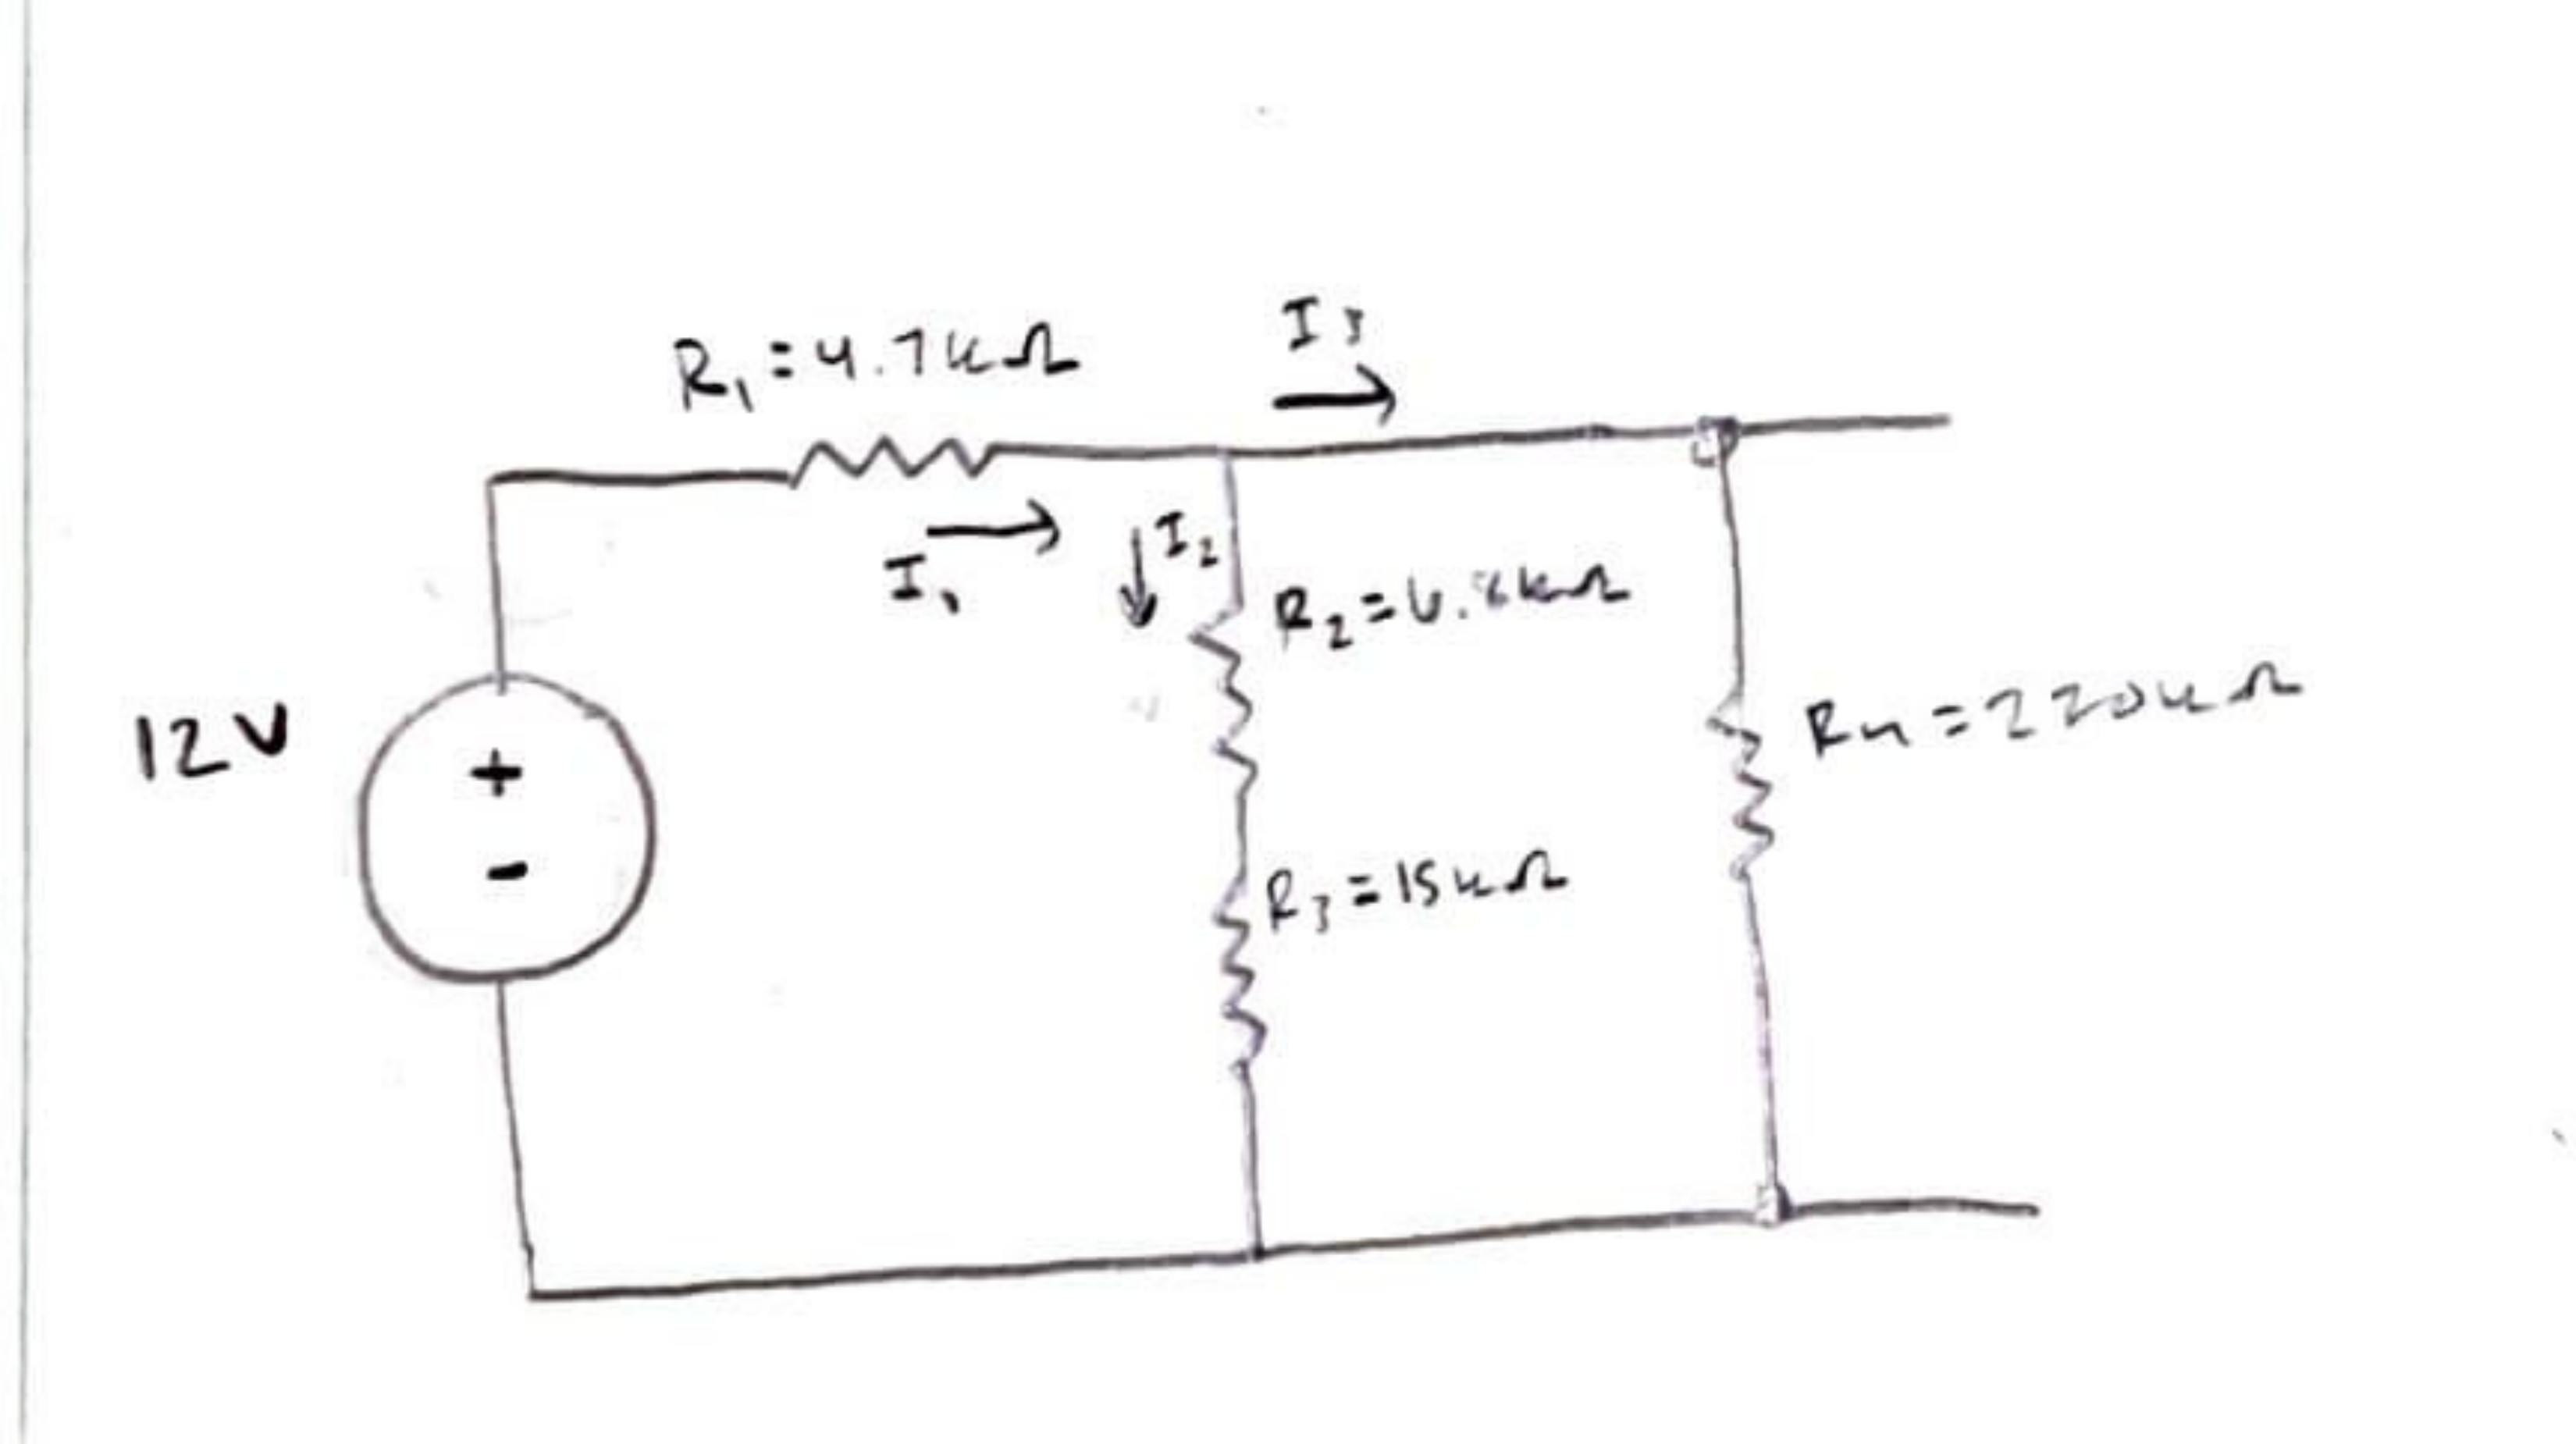 I3
R1=4.7kΩ
I1
I2
R2=6.8kΩ
12V
+
-
R4=220kΩ
R3=15kΩ